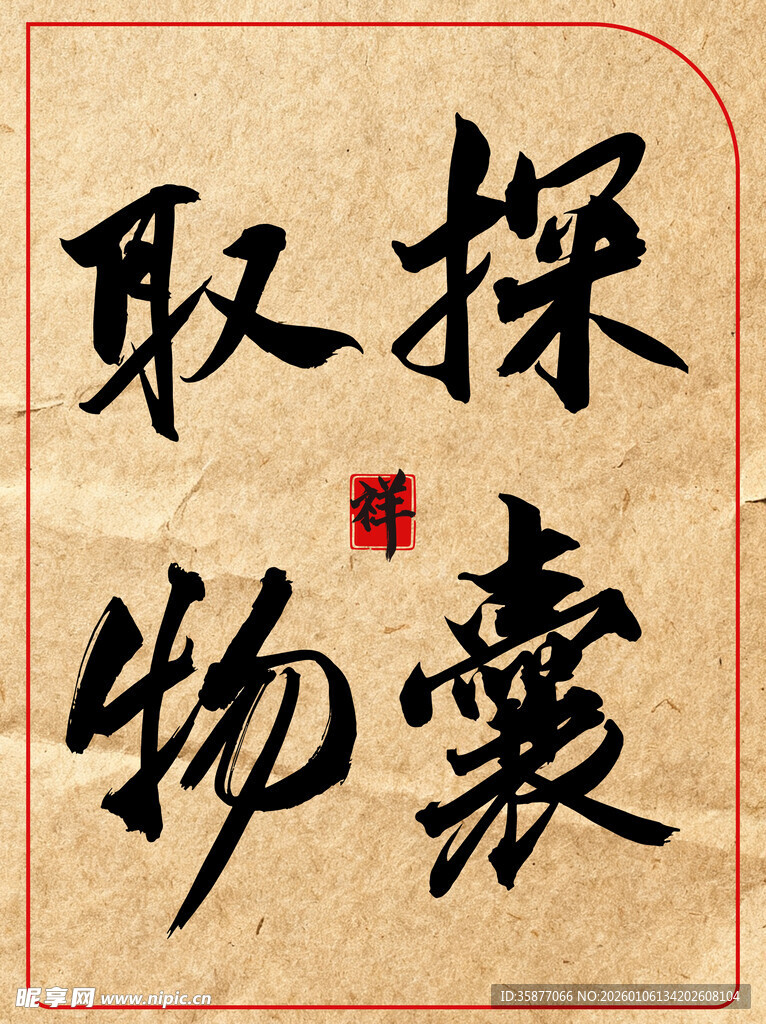 探囊
取物
祥
昵享网 www.nipic.cn
ID:35877066 NO:20260106134202608104